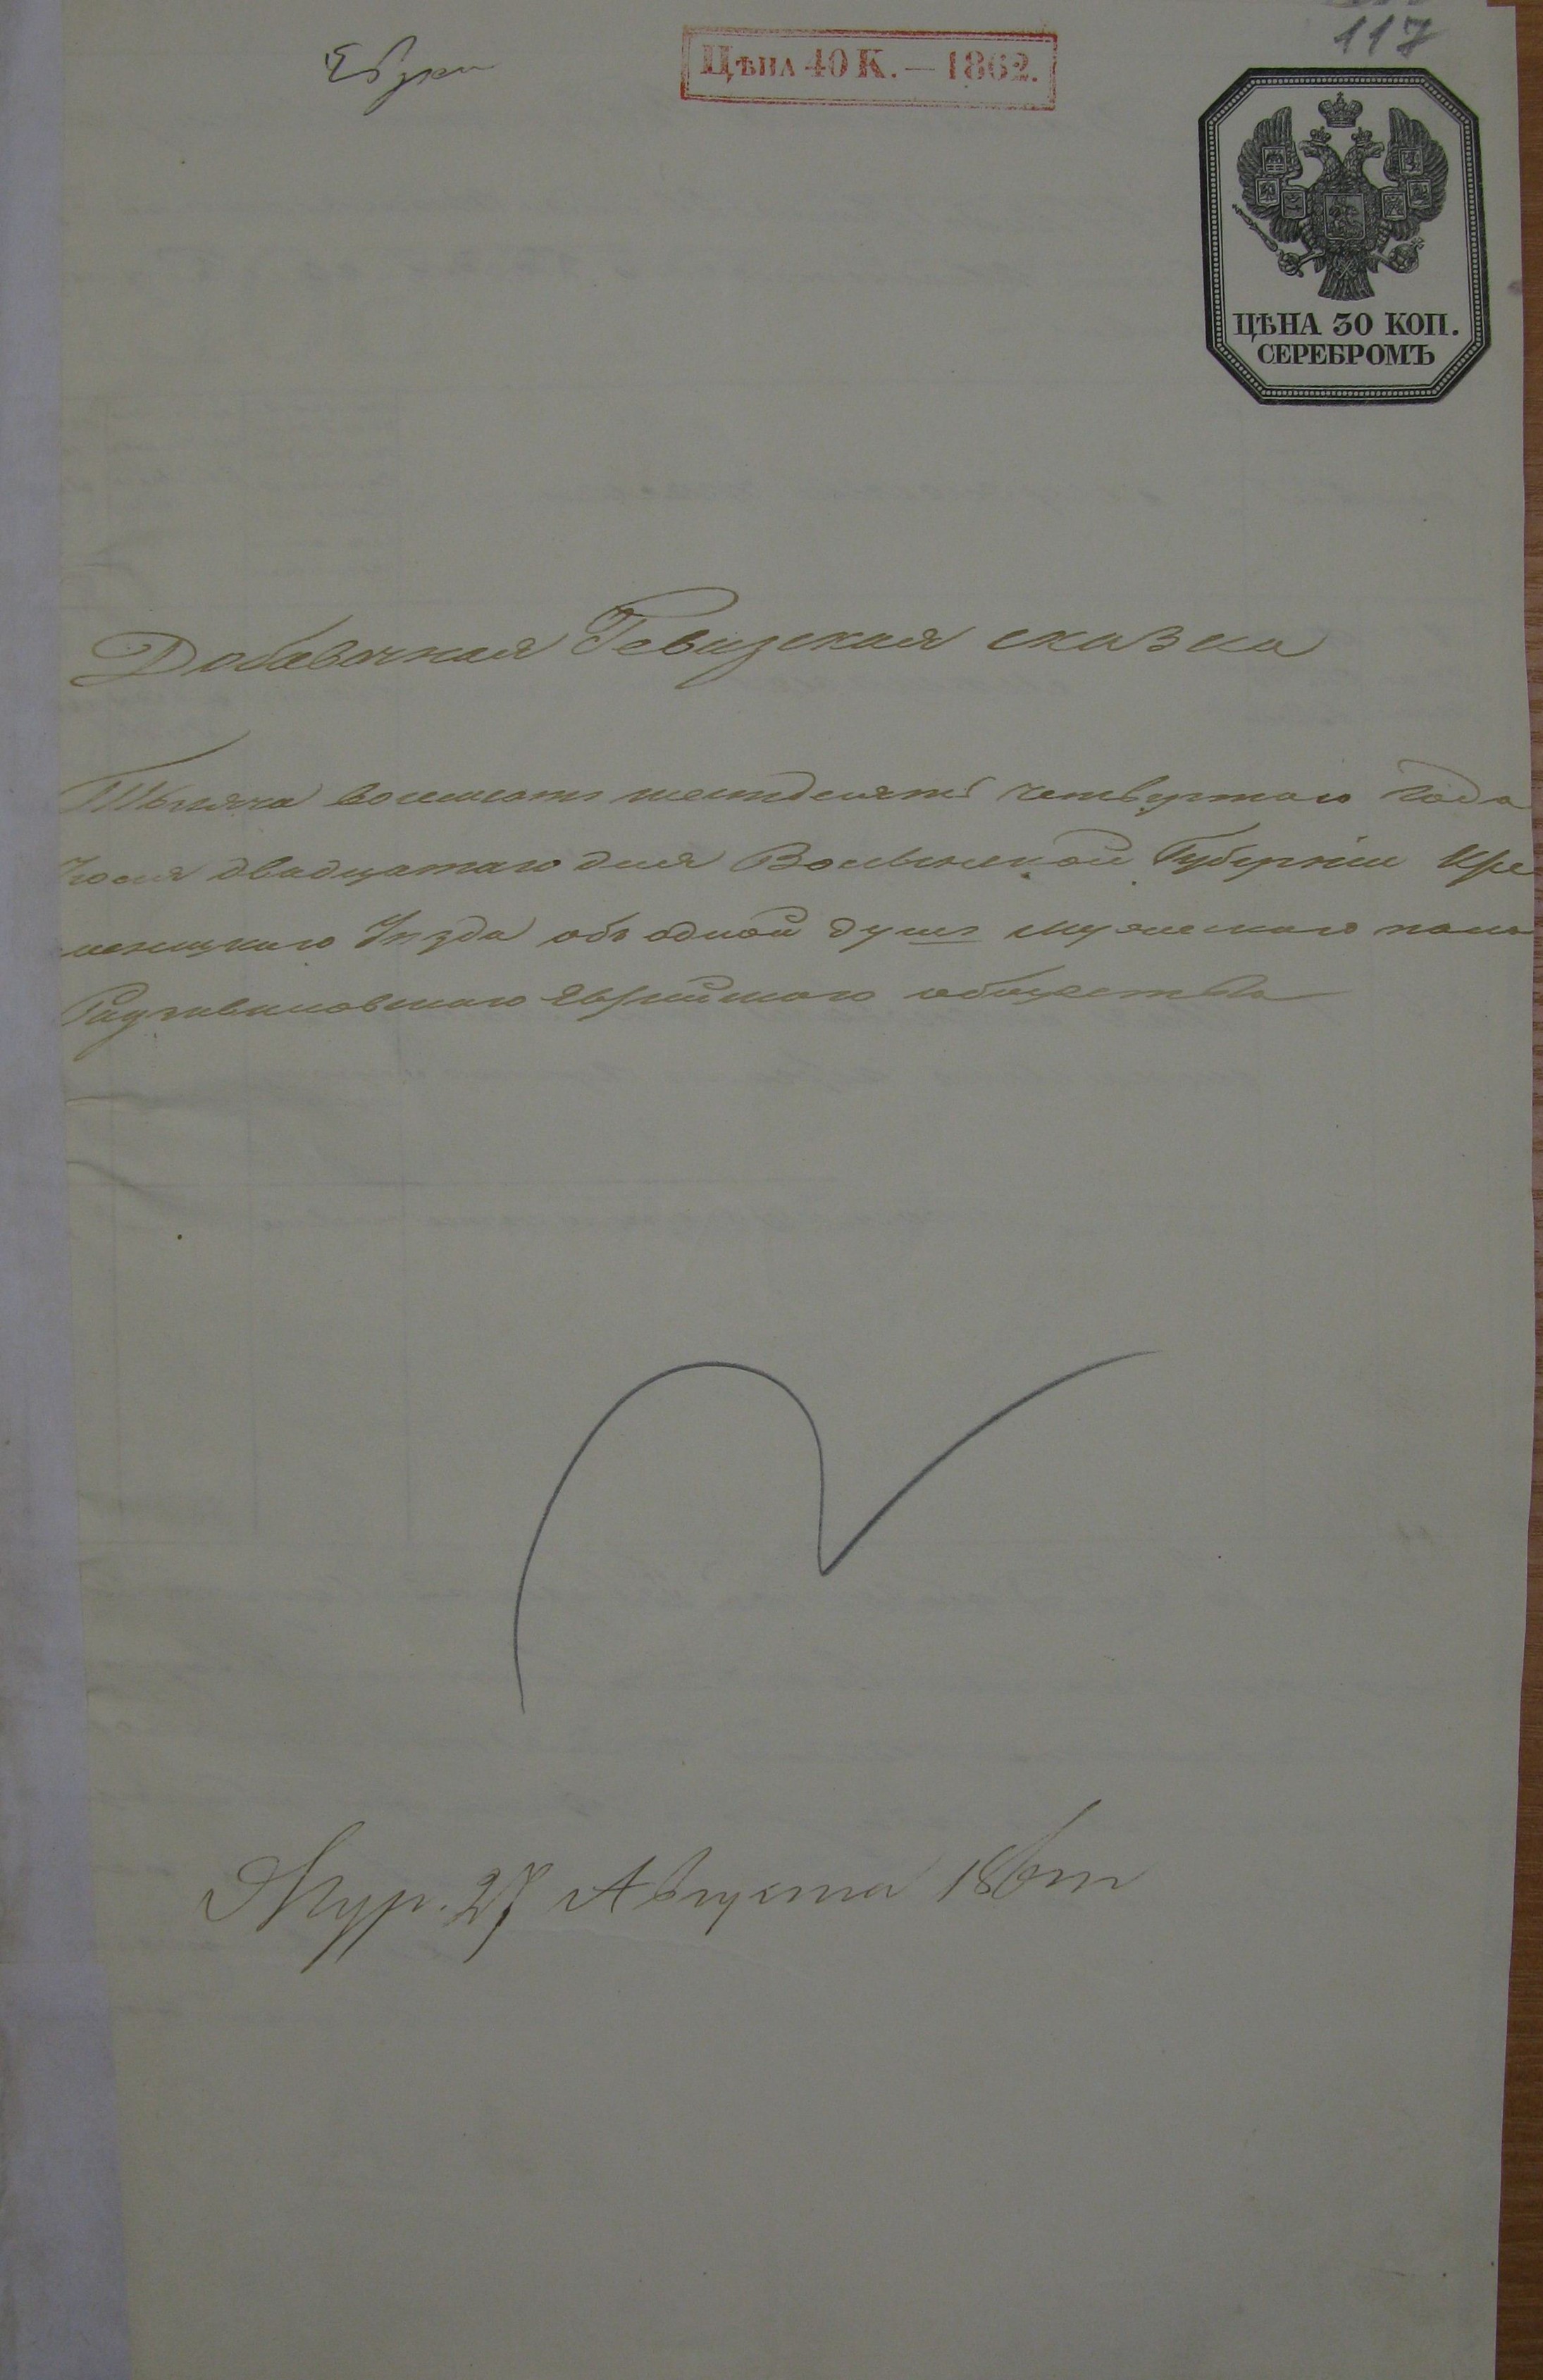 117
Цѣна 40 К. — 1862.
ЦѢНА 30 КОП.
СЕРЕБРОМЪ
Добавочная Ревизская сказка
Тысяча восемсотъ шестдесятъ четвертаго года
Iюня двадцатаго дня Волынской Губернiи Кре-
менецкаго Уѣзда объ одной душѣ мужескаго пола
Радзивиловскаго Еврейскаго общества
27 Августа